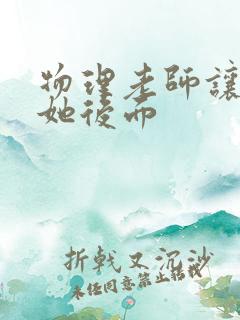 物理老師讓
她後面
折戟又沉沙
未经同意禁止转载